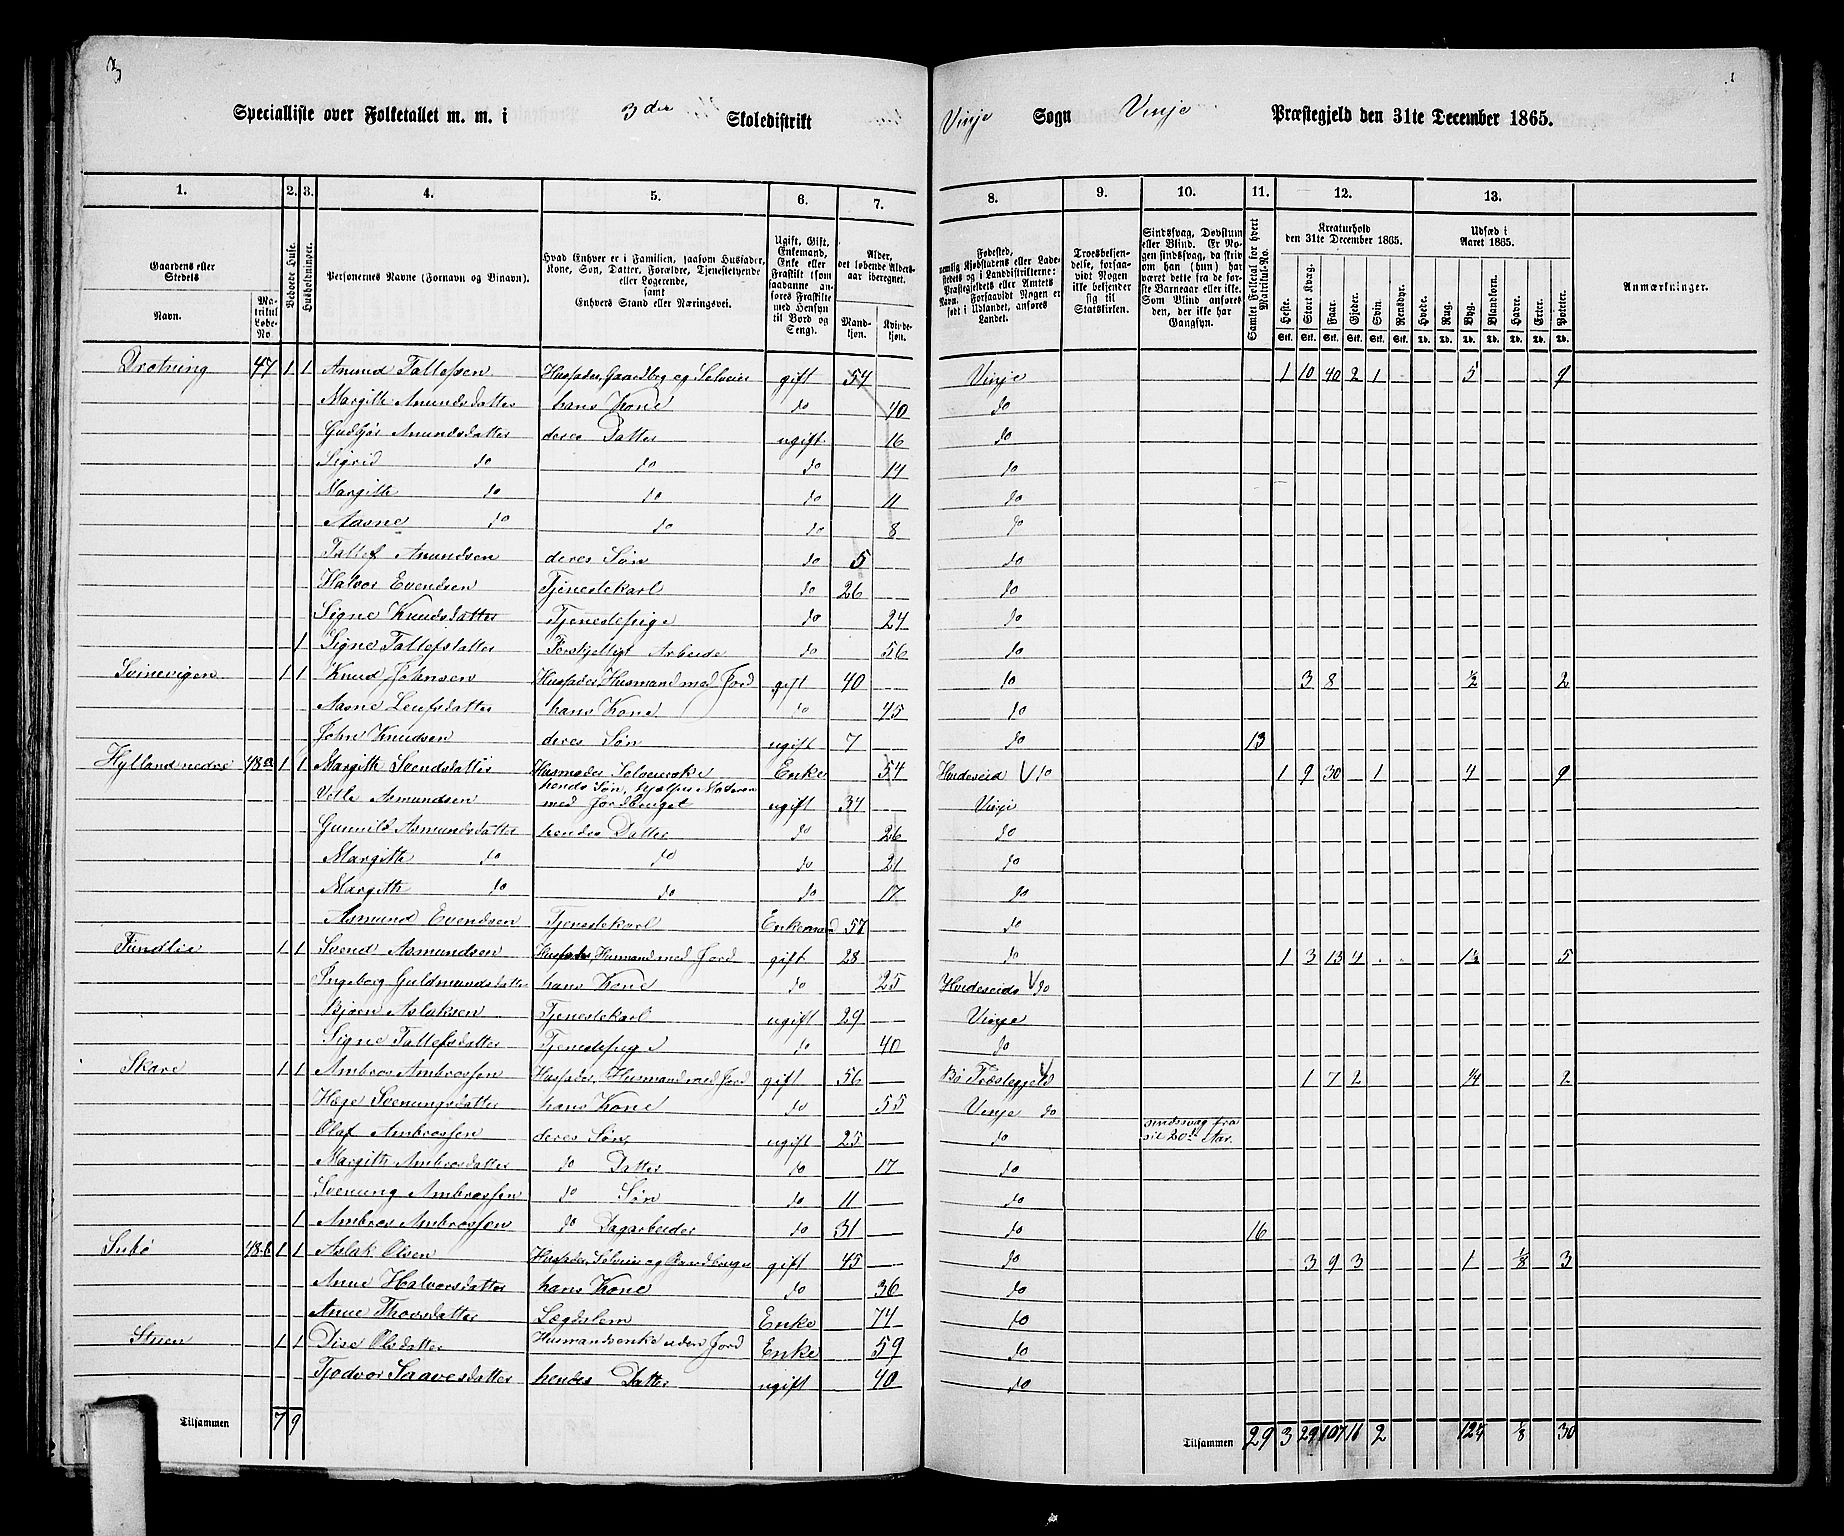 3
Specialliste over Folketallet m. m. i 3die Skoledistrikt Vinje Sogn Vinje Præstegjeld den 31te December 1865.
1. 2. 3. 4. 5. 6. 7. 8. 9. 10. 11. 12. 13.
Gaardens eller Stedets Navn. Matrikul Løbe-No Beboede Huse. Husholdninger. Personernes Navne (Fornavn og Binavn).
Hvad Enhver er i Familien, saasom Husfader, Kone, Søn, Datter, Forældre, Tjenestetyende eller Logerende, samt Enhvers Stand eller Næringsvei.
Ugift, Gift, Enkemand, Enke eller Fraskilt (som saadanne anføres Fraskilte med Hensyn til Bord og Seng).
Alder, det løbende Aldersaar iberegnet. Mandkjøn. Kvindekjøn.
Fødested, nemlig Kjøbstadens eller Ladestedets og i Landdistrikterne: Præstegjeldets eller Amtets Navn. Forsaavidt Nogen er født i Udlandet, anføres Landet.
Troesbekjendelse, forsaavidt Nogen ikke bekjender sig til Statskirken.
Sindssvag, Døvstum eller Blind. Er Nogen sindssvag, da skriv om han (hun) har været dette fra første Barneaar eller ikke. Som Blind anføres den, der ikke har Gangsyn.
Samlet Folketal for hvert Matrikul-No.
Kreaturhold den 31te December 1865. Heste. Stort Kvæg. Faar. Gjeder. Svin. Rensdyr.
Udsæd i Aaret 1865. Hvede. Rug. Byg. Blandkorn. Havre. Erter. Poteter.
Anmærkninger.
Drotning 47 1 1 Amund Tallefsen Husfader, Gaardbrg og Selveier gift 54 Vinje 1 10 40 2 1 5 9
Margith Amundsdatter hans Kone do 40 do
Gudbjør Amundsdatter deres Datter ugift 16 do
Sigrid do do do 14 do
Margith do do do 11 do
Aasne do do do 8 do
Tallef Amundsen deres Søn do 5 do
Halvor Evendsen Tjenestekarl do 26 do
Signe Knudsdatter Tjenestepige do 24 do
1 Signe Tallefsdatter Forskjelligt Arbeide do 56 do
Svinevigen 1 1 Knud Johnsen Husfader, Husmand med Jord gift 40 do 3 8 ½ 2
Aasne Leufsdatter hans Kone do 45 do
John Knudsen deres Søn ugift 7 do 13
Hylland nedre 48a 1 1 Margith Svendsdatter Husmoder, Selveierske Enke 54 Hvideseid do 1 9 30 1 4 9
Vetle Asmundsen hends Søn, hjælper Moderen med Jordbruget ugift 34 Vinje
Gunnild Asmundsdatter hendes Datter do 26 do
Margith do do do 21 do
Margith do do do 17 do
Asmund Evendsen Tjenestekarl Enkemand 57 do
Fundlie 1 1 Svend Asmundsen Husfader, Husmand med Jord gift 28 do 1 3 13 4 5
Ingeborg Guldmundsdatter hans Kone do 25 Hvideseids do
Bjørn Aslaksen Tjenestekarl ugift 29 Vinje
Signe Tallefsdatter Tjenestepige do 40 do
Skare 1 1 Ambros Ambrosen Husfader, Husmand med Jord gift 56 Bø Præstegjeld 1 7 2 ¼ 2
Hæge Svenungsdatter hans Kone do 55 Vinje do
Olaf Ambrosen deres Søn ugift 25 do sindssvag fra sit 20de Aar.
Margith Ambrosdatter do Datter do 17 do
Svenung Ambrosen do Søn do 11 do
1 Ambros Ambrosen do Dagarbeider do 31 do 16
48b 1 1 Aslak Olsen Husfader, Selveier og Gaardbruger gift 45 do 3 9 3 1 ⅛ 3
Anne Halvorsdatter hans Kone do 36 do
Anne Thorsdatter Lægdslem Enke 74 do
Stuen 1 1 Dise Olsdatter Husmandsenke uden Jord Enke 59 do
Tjodvor Saavesdatter hendes Datter ugift 40 do
Tilsammen 7 9 Tilsammen 29 3 29 107 11 2 12¼ ⅛ 30